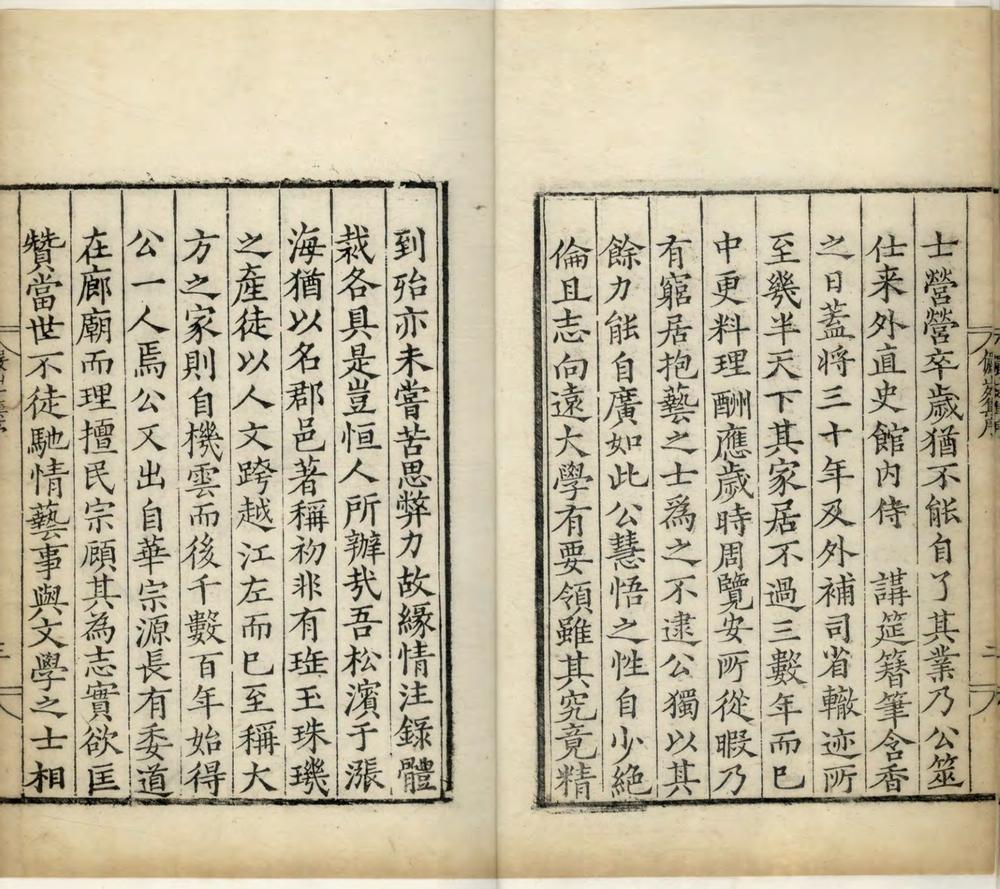 士營營卒歲猶不能自了其業乃公筮
仕来外直史館内侍　講筵簪筆含香
之日蓋將三十年及外補司省轍迹所
至幾半天下其家居不過三數年而已
中更料理酬應歲時周覽安所從暇乃
有窮居抱藝之士爲之不逮公獨以其
餘力能自廣如此公慧悟之性自少絶
倫且志向遠大學有要領雖其究竟精
到殆亦未嘗苦思弊力故緣情注錄體
裁各具是豈恒人所辦㢤吾松濱于漲
海猶以名郡邑著稱初非有琟玉珠璣
之產徒以人文跨越江左而已至稱大
方之家則自機雲而後千數百年始得
公一人焉公又出自華宗源長有委道
在廊廟而理擅民宗顧其為志實欲匡
贊當世不徒馳情藝事與文學之士相